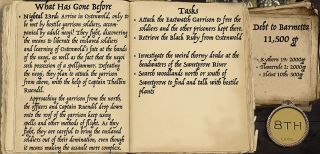 What Has Gone Before
• Nightal 23rd: Arrive in Oststenwold, only to
be met by hostile garrison soldiers, accom-
panied by adult neogi! They fight, discovering
the means to liberate the enslaved soldiers
and learning of Oststenwold's fate at the hands
of the neogi, as well as the fact that the neogi
seek possession of a spelljammer. Defeating
the neogi, they plan to attack the garrison
from above, with the help of Captain Thalbin
Ruendil.
Approaching the garrison from the worm,
the officers and Captain Ruendil drop down
onto the roof of the garrison keep using
spells and other methods of flight. As they
fight, they are careful to bring the enslaved
soldiers out of their domination, even though
it means making the assault more complex.
Tasks
• Attack the Eastwatch Garrison to free the
soldiers and the other prisoners kept there.
• Retrieve the Black Ruby from Oststenwold
• Investigate the weird thorny druke at the
headwaters of the Sweetgrove River
• Search woodlands north or south of
Sweetgrove to find and talk with hostile
plants
Debt to Barnetta
11,500 gp
2000 gp
Hent 10th: 500 gp
8TH